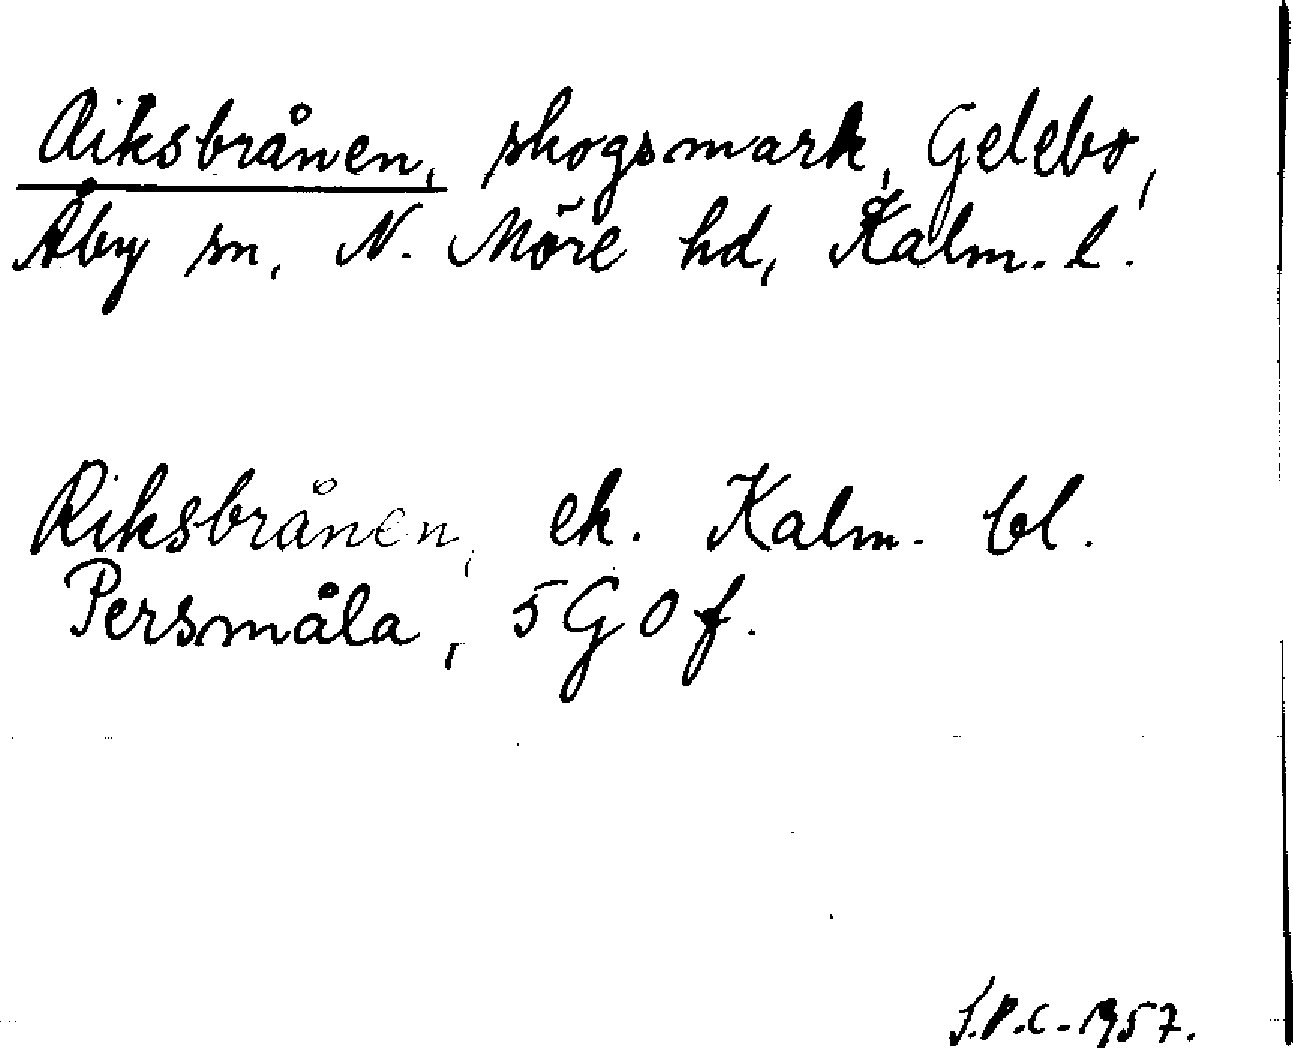 Aiksbrånen, skogsmark, Gelebo,
Åby sn, N. Möre hd, Kalm. l.
Riksbrånen, ek. Kalm. bl.
Persmåla, 5 G 0 f.
S.P.C. 1957.